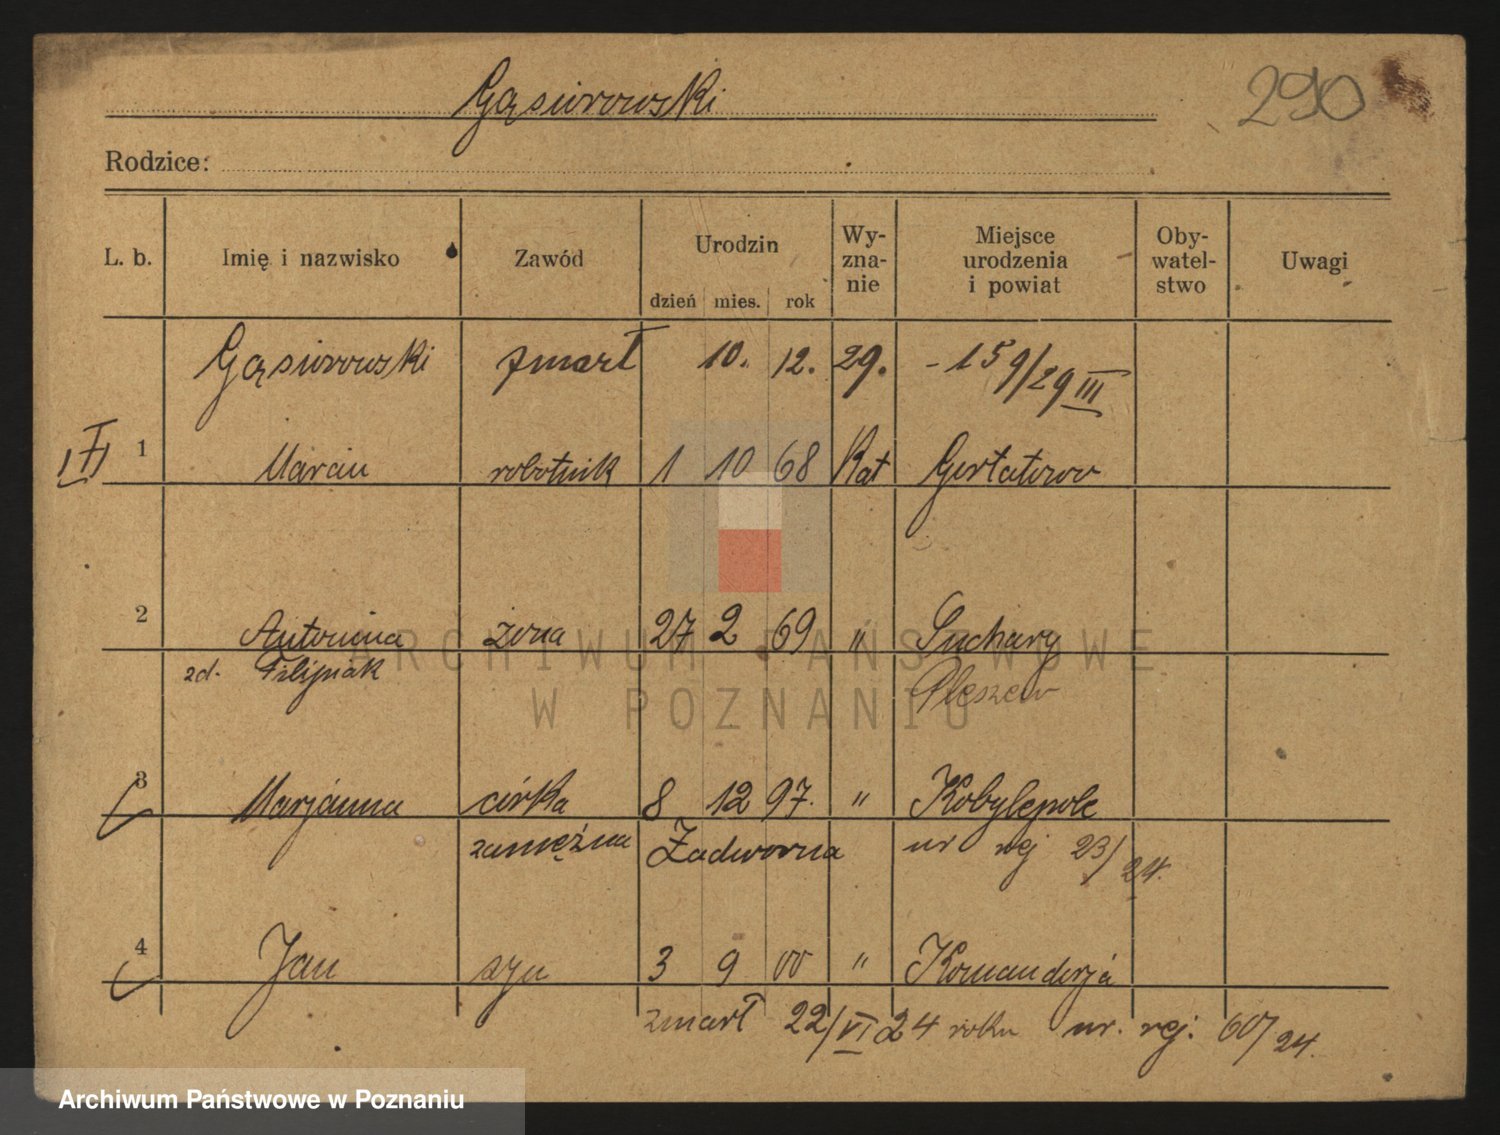 Gąsiorowski
290
Rodzice:
L. b. Imię i nazwisko Zawód Urodzin dzień mies. rok Wy-zna-nie Miejsce urodzenia i powiat Oby-watel-stwo Uwagi
Gąsiorowski zmarł 10. 12. 29. - 159/29 III
1 Marcin robotnik 1 10 68 Kat
2 Antonina żona 27 2 69 " Suchary
zd. Filipiak Pleszew
3 Marjanna córka 8 12 97. " Kobylepole
zamężna Zadworna nr rej 23/24.
4 Jan syn 3 9 00 " Komanderja
zmarł 22/VI 24 roku nr. rej: 60/24.
ARCHIWUM PAŃSTWOWE
W POZNANIU
Archiwum Państwowe w Poznaniu